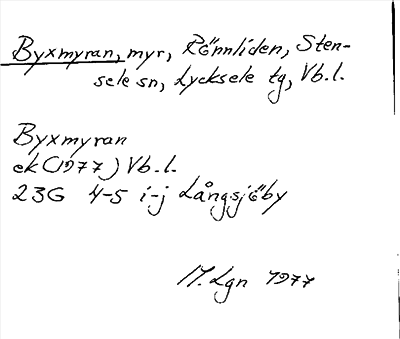 Byxmyran, myr, Rönnliden, Sten-
sele sn, Lycksele tg, Vb.l.
Byxmyran
ek (1977) Vb.l.
23G 4-5 i-j Långsjöby
M. Lgn 1977